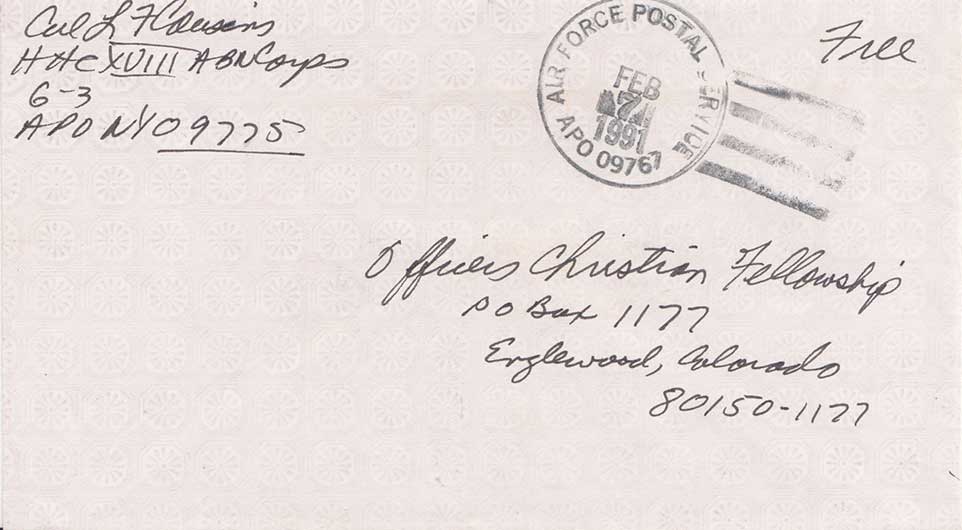 Col L F Cousins
HHC XVIII ABN Corps
G-3
APO NY 09775
AIR FORCE POSTAL SERVICE
FEB
7
1991
APO 09767
Free
Officers Christian Fellowship
PO Box 1177
Englewood, Colorado
80150-1177